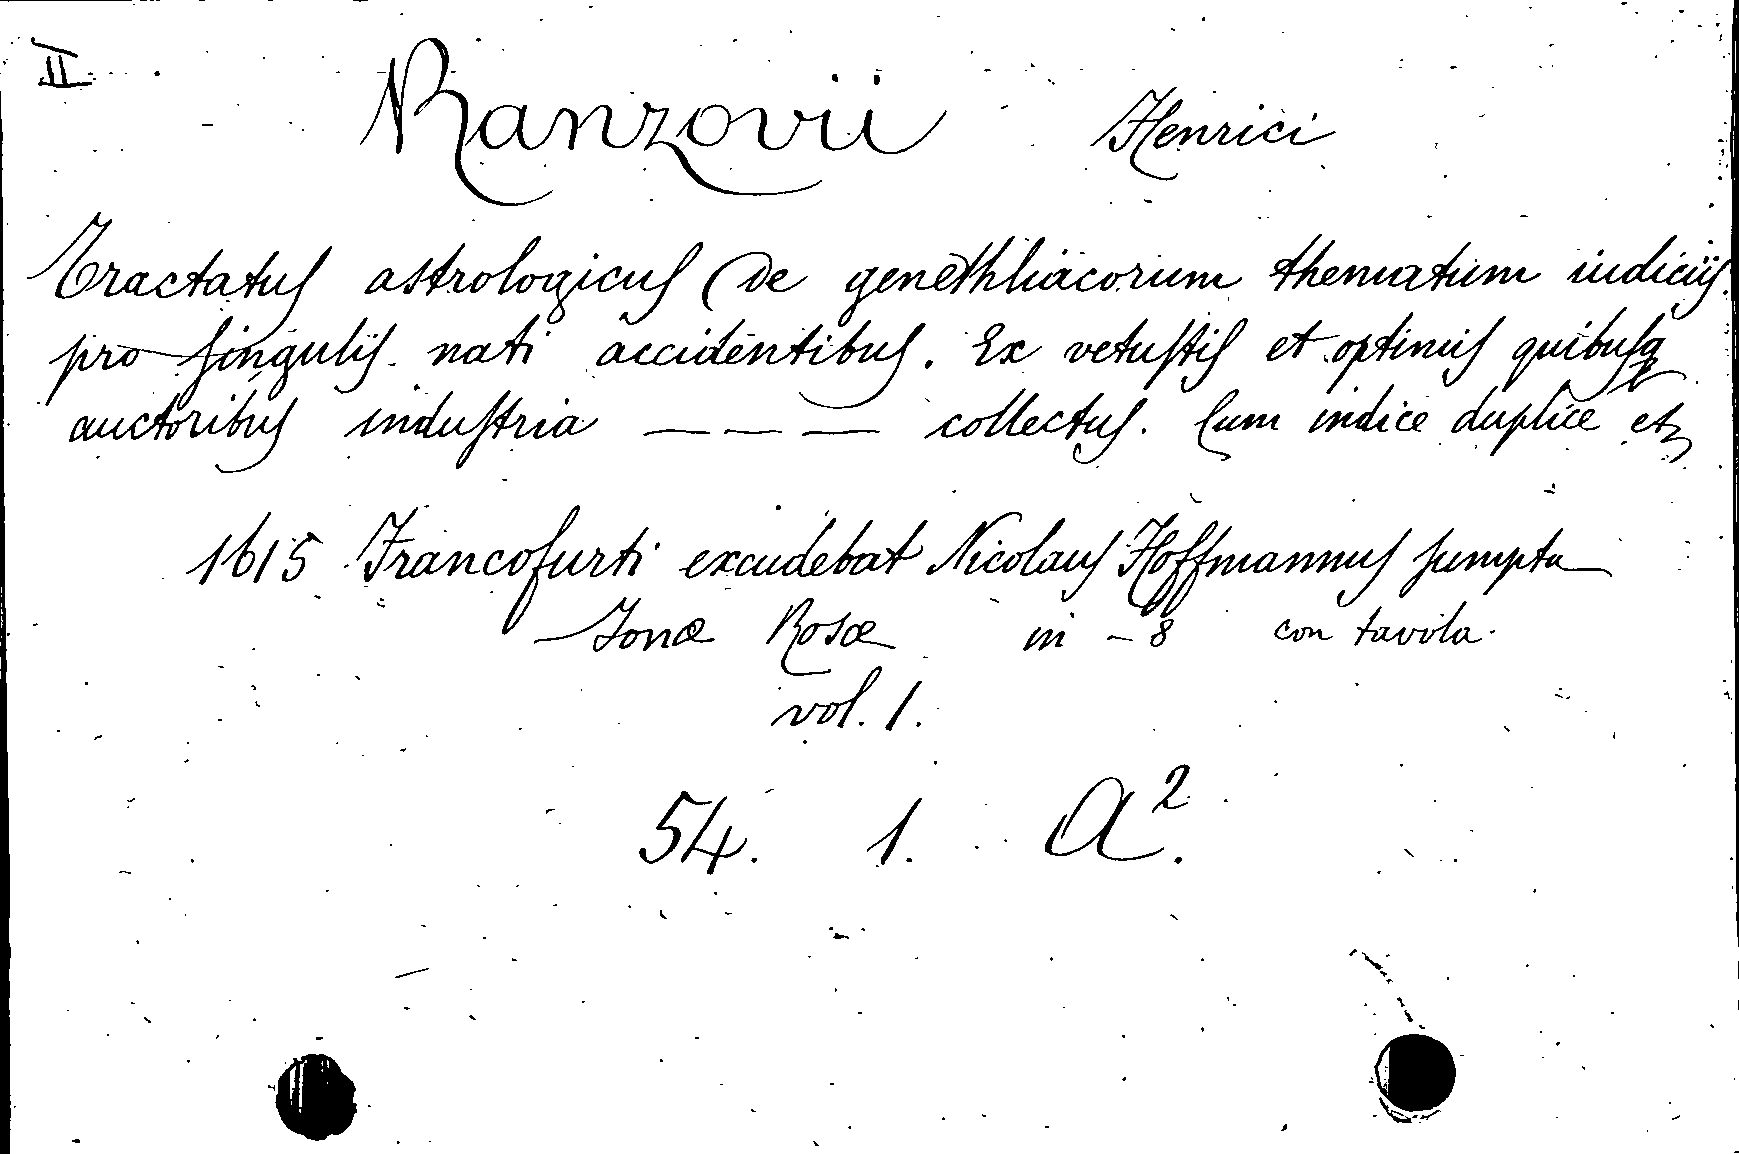 II
Ranzovii Henrici
Tractatus astrologicus de genethliacorum thematum iudiciis
pro singulis nati accidentibus. Ex vetustis et optimis quibusq
auctoribus industria — — — collectus. Cum indice duplice etc
1615 Francofurti excudebat Nicolaus Hoffmannus sumptu
Jonæ Rosæ in - 8 con tavola.
vol. 1.
54. 1. A².